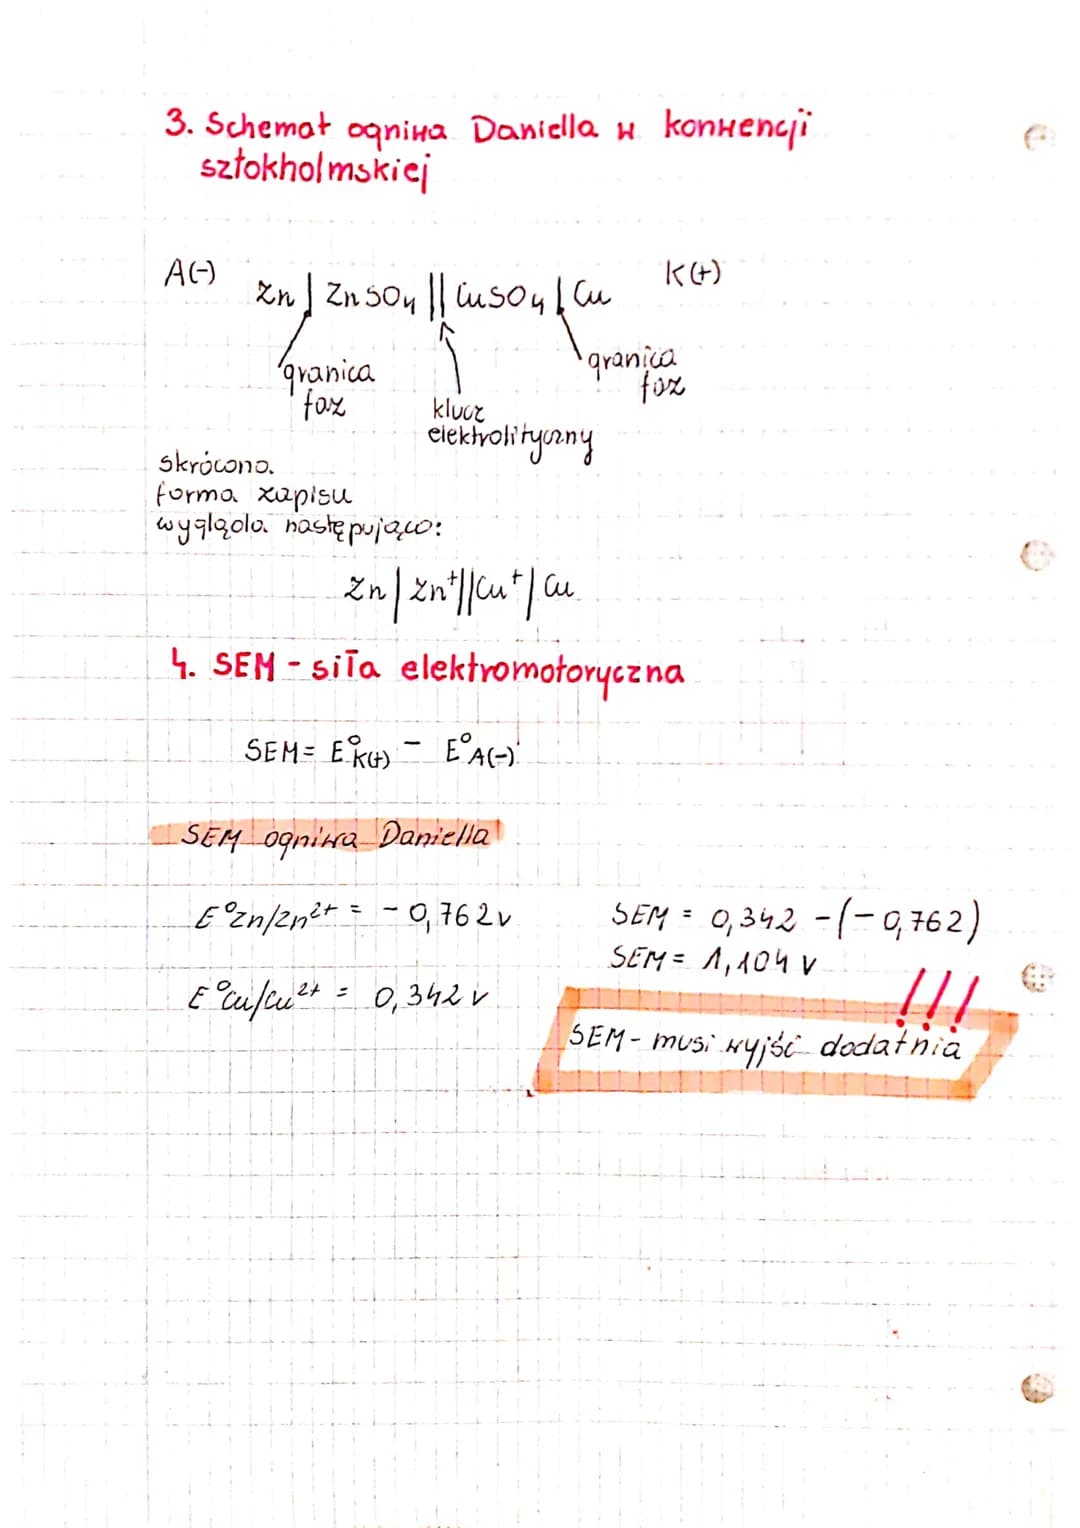 3. Schemat ogniwa Daniella w konwencji
sztokholmskiej
A(-)
K(+)
Zn | ZnSO₄ || CuSO₄ | Cu
granica
faz
granica
faz
klucz
elektrolityczny
skrócona
forma zapisu
wygląda następująco:
Zn | Zn⁺ || Cu⁺ | Cu
4. SEM - siła elektromotoryczna
SEM = E°K(+) - E°A(-)
SEM ogniwa Daniella
E°Zn/Zn²⁺ = - 0,762V
SEM = 0,342 - (- 0,762)
SEM = 1,104 V
E°Cu/Cu²⁺ = 0,342 V
!!!
SEM - musi wyjść dodatnia